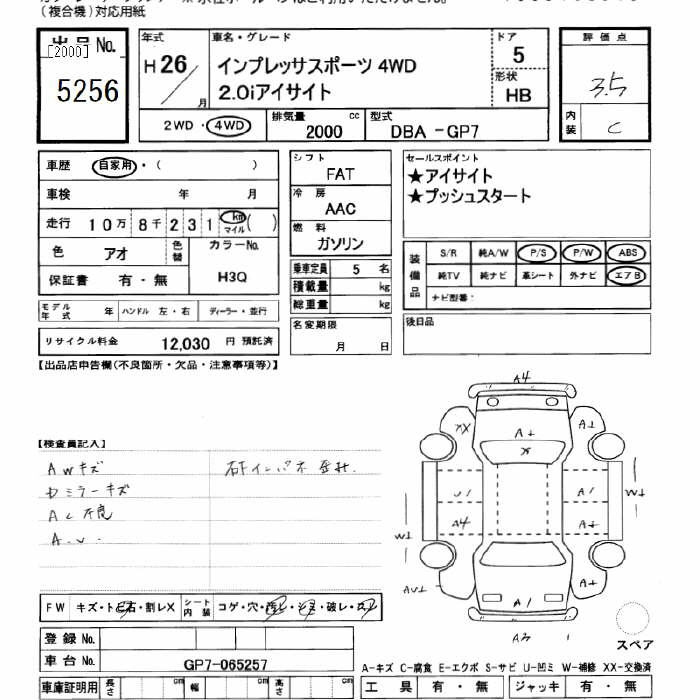 （複合機）対応用紙
出品 No.
[2000]
5256
年式
H 26 / 月
車名・グレード
インプレッサスポーツ 4WD
2.0iアイサイト
ドア
5
形状
HB
評価点
3.5
内装
C
2WD・4WD
排気量 2000 cc
型式 DBA -GP7
車歴 自家用・( )
車検 年 月
走行 10万 8千 231 km マイル ( )
色 アオ
色替
カラーNo. H3Q
保証書 有・無
モデル年式 年
ハンドル 左・右
ディーラー・並行
リサイクル料金 12,030 円 預託済
シフト
FAT
冷房
AAC
燃料
ガソリン
乗車定員 5 名
積載量 kg
総重量 kg
名変期限
月 日
セールスポイント
★アイサイト
★プッシュスタート
装備品
S/R 純A/W P/S P/W ABS
純TV 純ナビ 革シート 外ナビ エアB
ナビ型番：
後日品
【出品店申告欄(不良箇所・欠品・注意事項等)】
【検査員記入】
AWキズ
ドミラーキズ
AC不良
A.U.
A4
XX
A⊥
A⊥
X
U1
A1
W⊥
A4
A⊥
W⊥
AU⊥
A⊥
A1
A3
スペア
FW キズ・トビ石・割レX
シート内装 コゲ・穴・汚レ・シミ・破レ・スレ
登録 No.
車台 No. GP7-065257
車庫証明用 長さ cm 幅 cm 高さ cm
A-キズ C-腐食 E-エクボ S-サビ U-凹ミ W-補修 XX-交換済
工具 有・無 ジャッキ 有・無